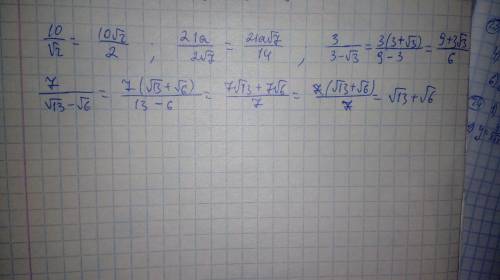 10/√2 = 10√2/2 ; 21a/2√7 = 21a√7/14 , 3/3-√3 = 3(3+√3)/9-3 = 9+3√3/6
7/√13-√6 = 7(√13+√6)/13-6 = 7√13+7√6/7 = 7(√13+√6)/7 = √13+√6